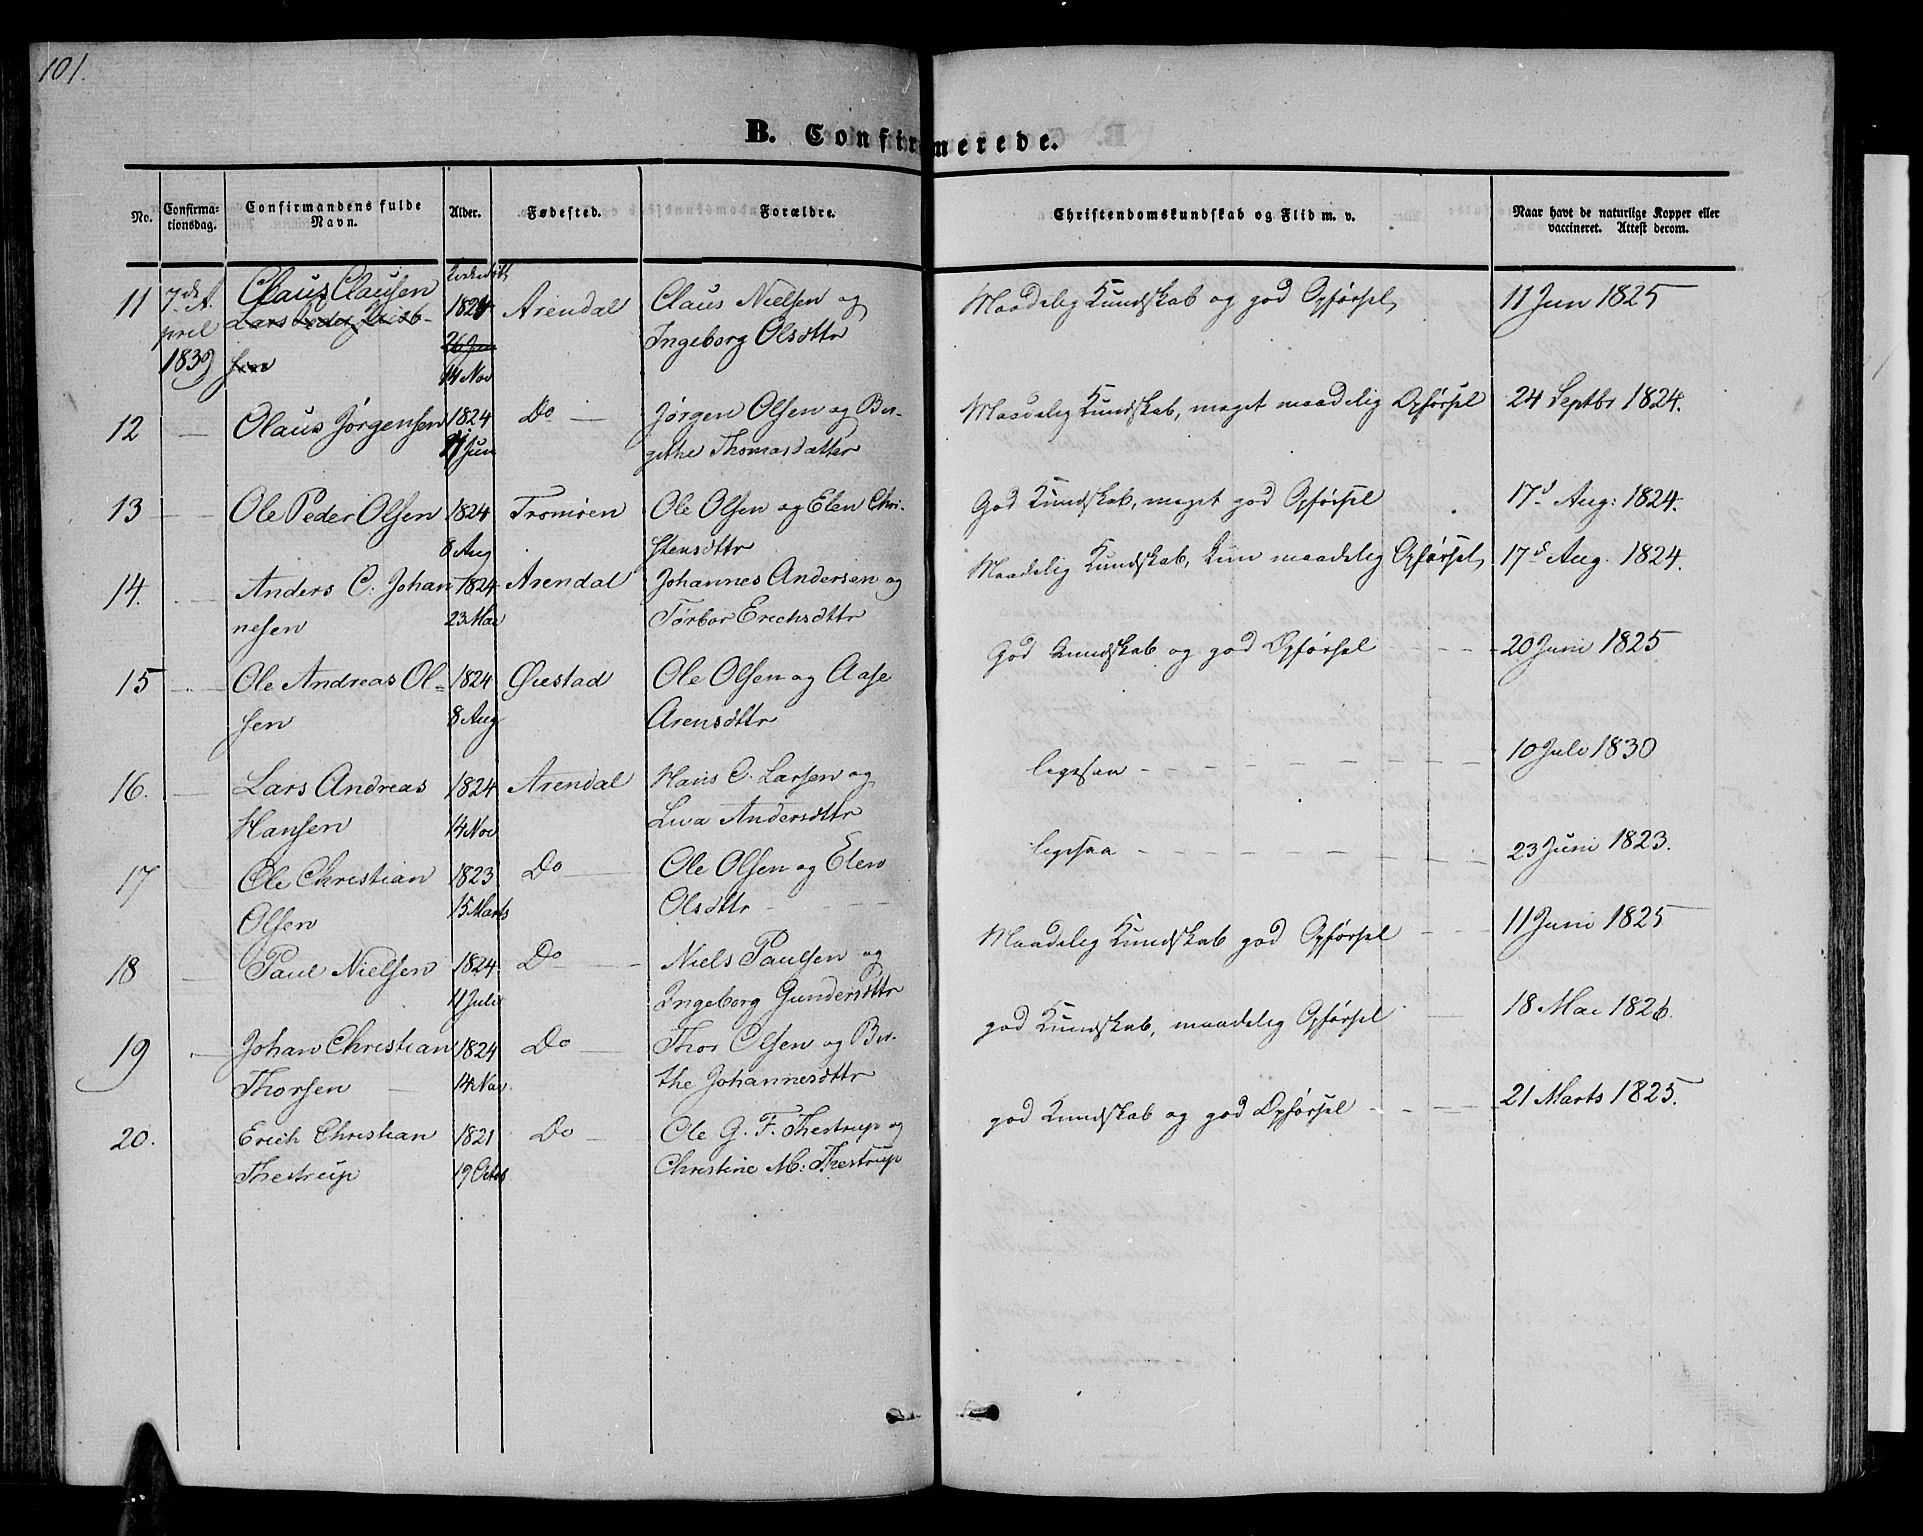 101.
B. Confirmerede.
No.
Confirma-
tionsdag.
Confirmandens fulde
Navn.
Alder.
Fødested.
Forældre.
Christendomskundskab og Flid m. v.
Naar havt de naturlige Kopper eller
vaccineret. Attest derom.
11 7de A Claus Clausen 1824 Arendal Claus Nielsen og Maadelig Kundskab og god Opførsel 11 Jun 1825
pril Lars Peder 26 Jun Ingeborg Olsdttr
1839 14 Nov
12 — Olaus Jørgensen 1824 Do — Jørgen Olsen og Ber- Maadelig Kundskab, meget maadelig Opførsel 24 Septbr 1824.
Jun gethe Thomasdatter
13 — Ole Peder Olsen 1824 Tromøen Ole Olsen og Elen Chri- God Kundskab, meget god Opførsel 17d Aug: 1824.
8 Aug stensdttr
14. — Anders C. Johan 1824 Arendal Johannes Andersen og Maadelig Kundskab, kun maadelig Opførsel 17d Aug. 1824.
nesen 23 Mai Torbor Erichsdttr
15 — Ole Andreas Ol- 1824 Øiestad Ole Olsen og Aase God Kundskab og god Opførsel - - - - 20 Juni 1825
sen 8 Aug Arensdttr
16. — Lars Andreas 1824 Arendal Hans C. Larsen og ligesaa - - - - 10 Juli 1830
Hansen 14 Nov Andersdttr
17 — Ole Christian 1823 Do — Ole Olsen og Elen ligesaa - - - - 23 Juni 1823.
Olsen 15 Marts Olsdttr - - -
18 — Paul Nielsen 1824. Do — Niels Paulsen og Maadelig Kundskab god Opførsel - - 11 Juni 1825
11 Juli Ingeborg Gundersdttr
19 — Johan Christian 1824 Do — Thor Olsen og Ber- god Kundskab, maadelig Opførsel - - 18 Mai 1826.
Thorsen — 14 Nov the Johannesdttr
20. Erich Christian 1821 Do — Ole G. F. Thestrup og god Kundskab og god Opførsel - - - 21 Marts 1825.
Thestrup 19 Octob Christine M: Thestrup